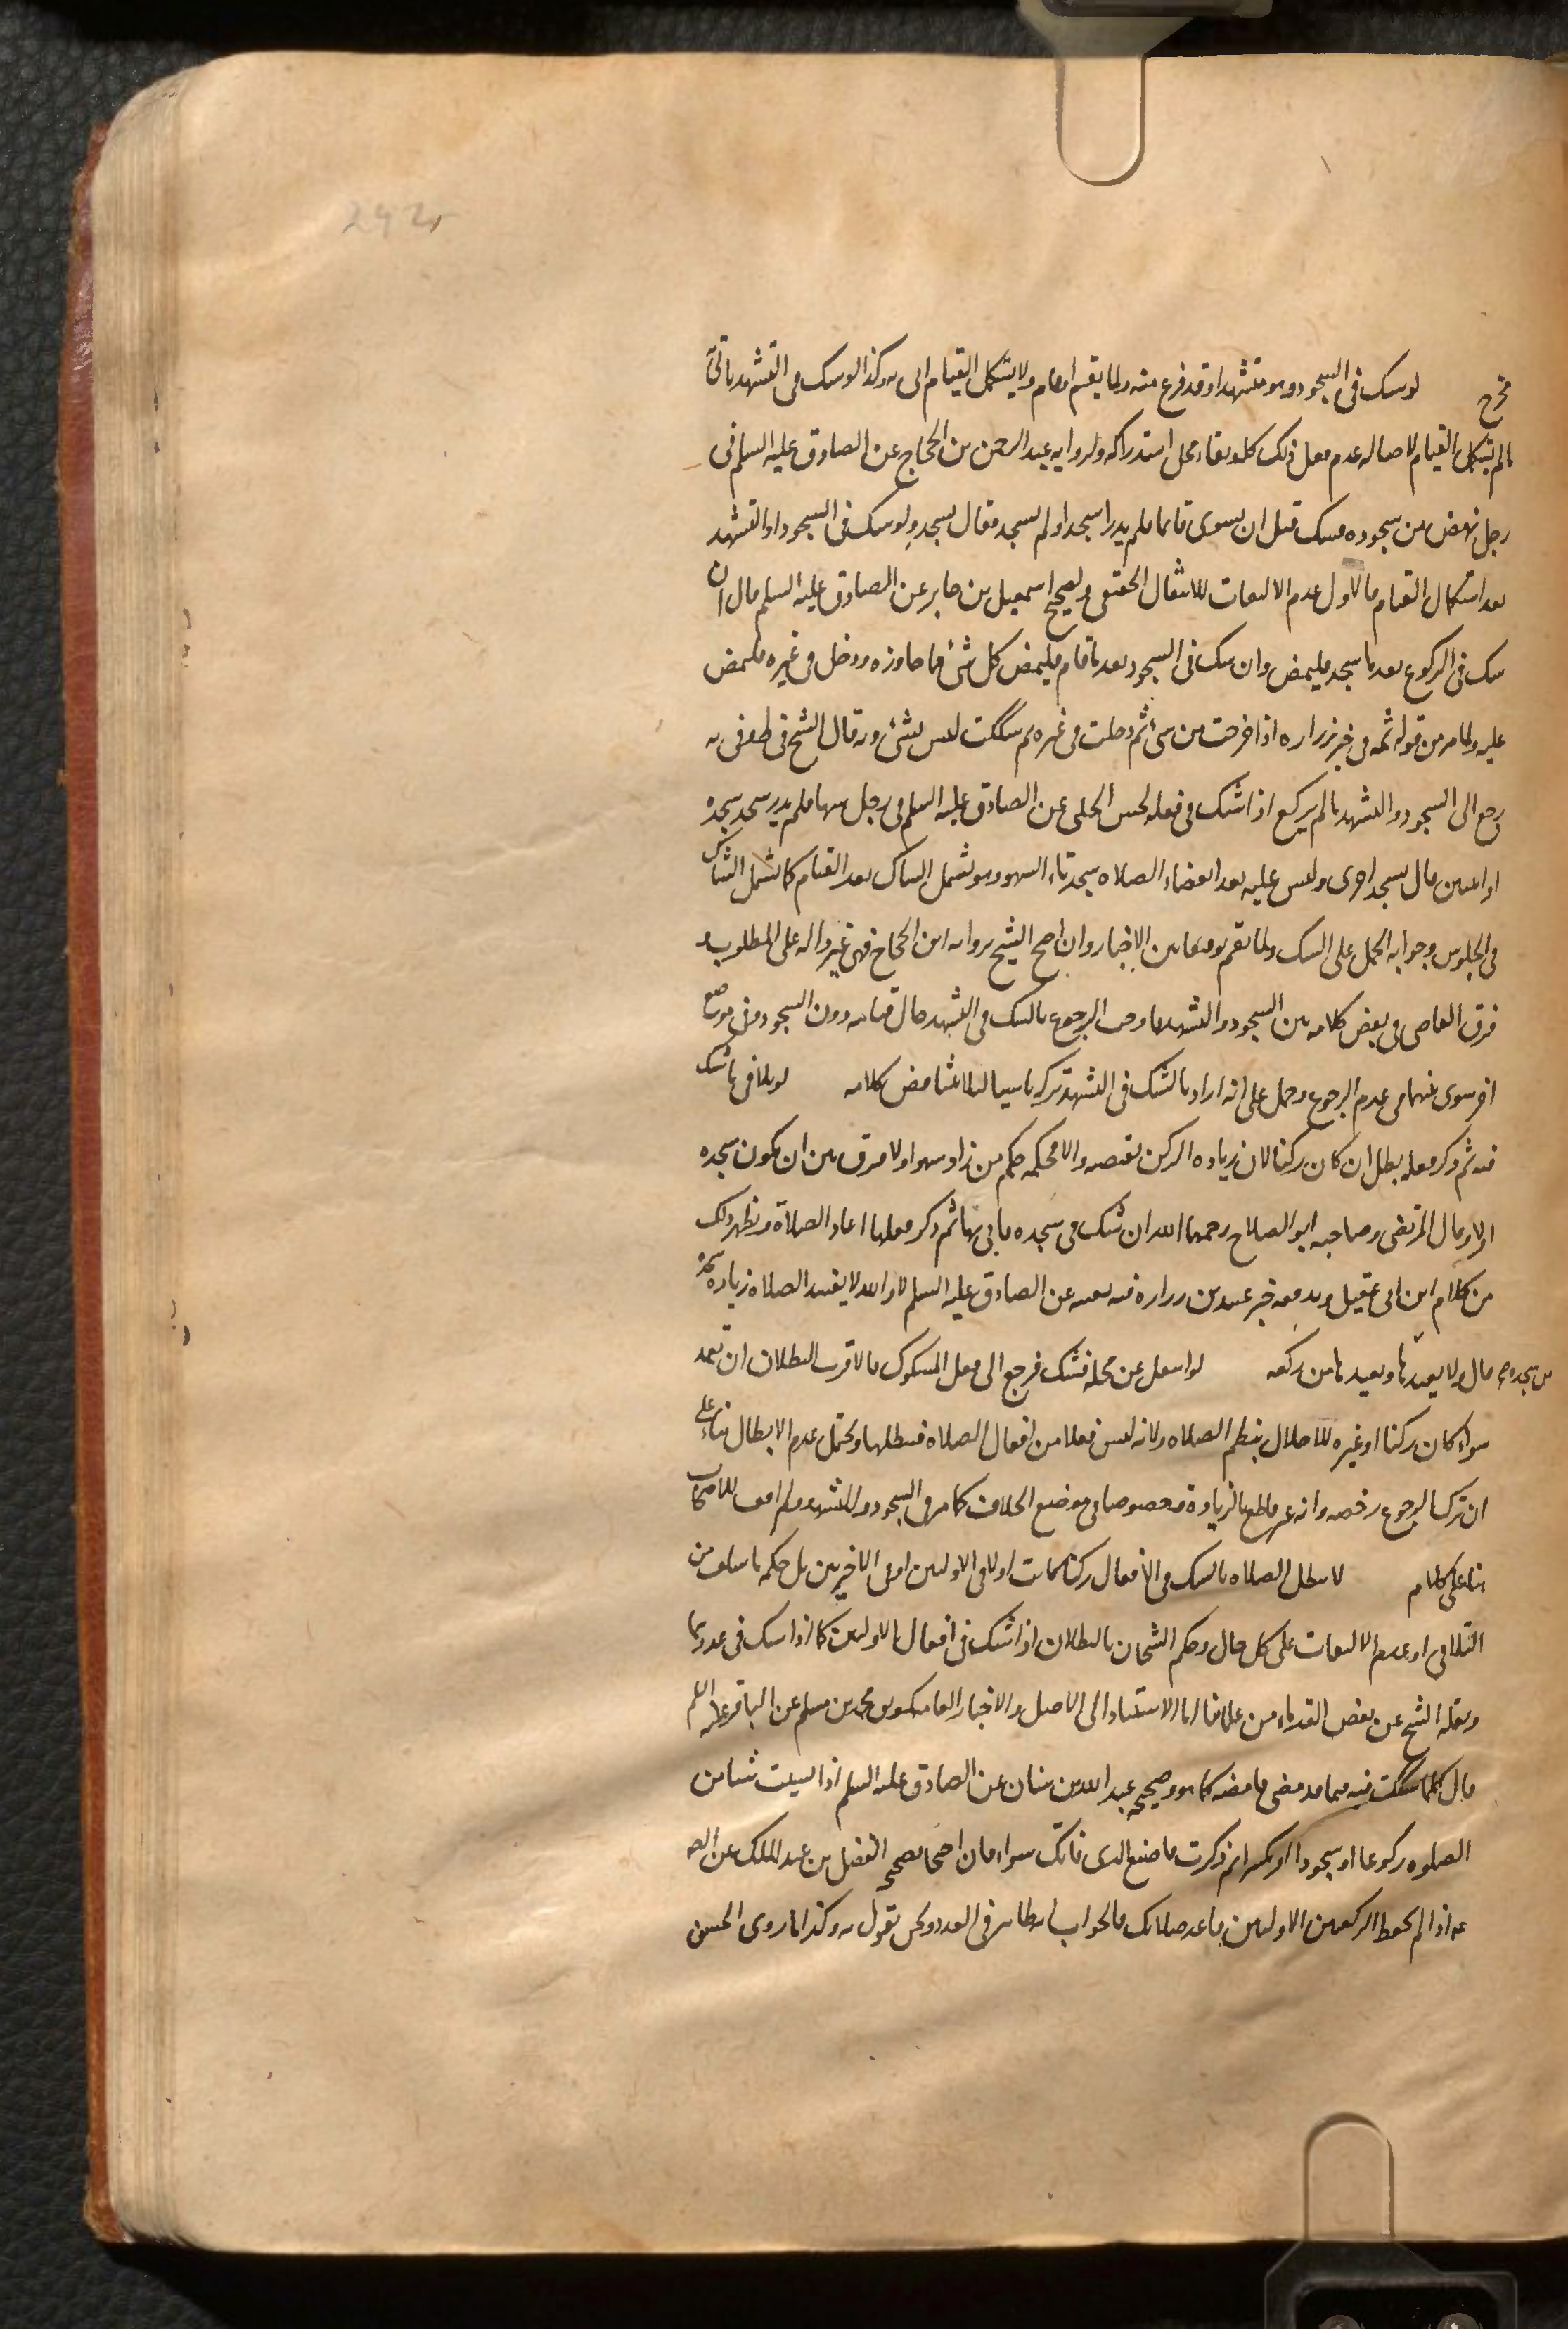 لو شك في السجود وهو متشهد او قد فرغ منه ولما يقم او قام ولما يستكمل القيام اتى به وكذا لو شك في التشهد ياتي
ما لم يستكمل القيام لاصالة عدم فعل ذلك كله وبقاء محل استدراكه ولرواية عبد الرحمن بن الحجاج عن الصادق عليه السلم في
رجل نهض من سجوده فشك قبل ان يستوي قائما فلم يدر اسجد او لم يسجد فقال يسجد ولو شك في السجود او التشهد
بعد استكمال القيام فالاول عدم الالتفات للانتقال الحقيقي ولصحيح اسمعيل بن جابر عن الصادق عليه السلم قال ان
شك في الركوع بعد ما سجد فليمض وان شك في السجود بعد ما قام فليمض كل شئ فما جاوزه ودخل في غيره فليمض
عليه ولما مر من قوله ثمه في خبر زراره اذا خرجت من شئ ثم دخلت في غيره ثم شككت ليس بشئ وبه قال الشيخ في ط وفي يه
رجع الى السجود والتشهد ما لم يركع اذا شك في فعله لحسن الحلبي عن الصادق عليه السلم في رجل سها فلم يدر سجد سجده
او اثنتين قال يسجد اخرى وليس عليه بعد انقضاء الصلاه سجدتا السهو وهو تشمل الشاك بعد القيام كما تشمل الشاك
في الجلوس وجوابه الحمل على الشك ولما تقم توفيقا بين الاخبار وان احتج الشيخ برواية ابن الحجاج فهي غير داله على المطلوب و
فرق القاضي في بعض كلامه بين السجود والتشهد فاوجب الرجوع بالشك في التشهد حال قيامه دون السجود وفي موضع
اخر سوى بينهما في عدم الرجوع وحمل على انه اراد بالشك في التشهد تركه ناسيا لئلا يتناقض كلامه لو تلافى ما شك
فيه ثم ذكر فعله بطل ان كان ركنا لان زيادة الركن مبطله والا فحكمه حكم من زاد سهوا ولا فرق بين ان يكون سجده
او لا وقال المرتضى وصاحبه ابو الصلاح رحمهما الله ان شك في سجده فاتى بها ثم ذكر فعلها اعاد الصلاة ويظهر ذلك
من كلام ابن ابي عقيل ويدفعه خبر عبيد بن زراره عن الصادق عليه السلم لا والله لا يفسد الصلاه زياده سجده
قال ولا يعيدها من سجده ويعيدها من ركعه لو انتقل عن محله فشك فرجع الى فعل المشكوك فالاقرب البطلان ان تعمد
سواء كان ركنا او غيره للاخلال بنظم الصلاه ولانه ليس فعلا من افعال الصلاه فيبطلها ويحتمل عدم الابطال بناء على
ان ترك الرجوع رخصه وانه غير قاطع بالزيادة وخصوصا في موضع الخلاف كما مر في السجود والتشهد ولم اقف للاصحاب
هنا على كلام لا تبطل الصلاه بالشك في الافعال ركنا كانت او لا في الاولين او في الاخيرتين بل حكمه ما سلف من
التلافي او عدم الالتفات على كل حال وحكم الشيخان بالبطلان اذا شك في افعال الاولتين كما اذا شك في عددهما
ونقله الشيخ عن بعض القدماء من علمائنا لنا الاستناد الى الاصل والاخبار العامه كموثق محمد بن مسلم عن الباقر عليه السلم
قال كلما شككت فيه مما قد مضى فامضه كما هو وصحيحه عبد الله بن سنان عن الصادق عليه السلم اذا نسيت شيئا من
الصلوه ركوعا او سجودا او تكبيرا ثم ذكرت فاصنع الذي فاتك سواء فان احتجا بصحيح الفضل بن عبد الملك عن الصـ
عه اذا لم تحفظ الركعتين الاولتين فاعد صلاتك فالجواب انه ظاهر في العدد ونحن نقول به وكذا ما روى الحسن